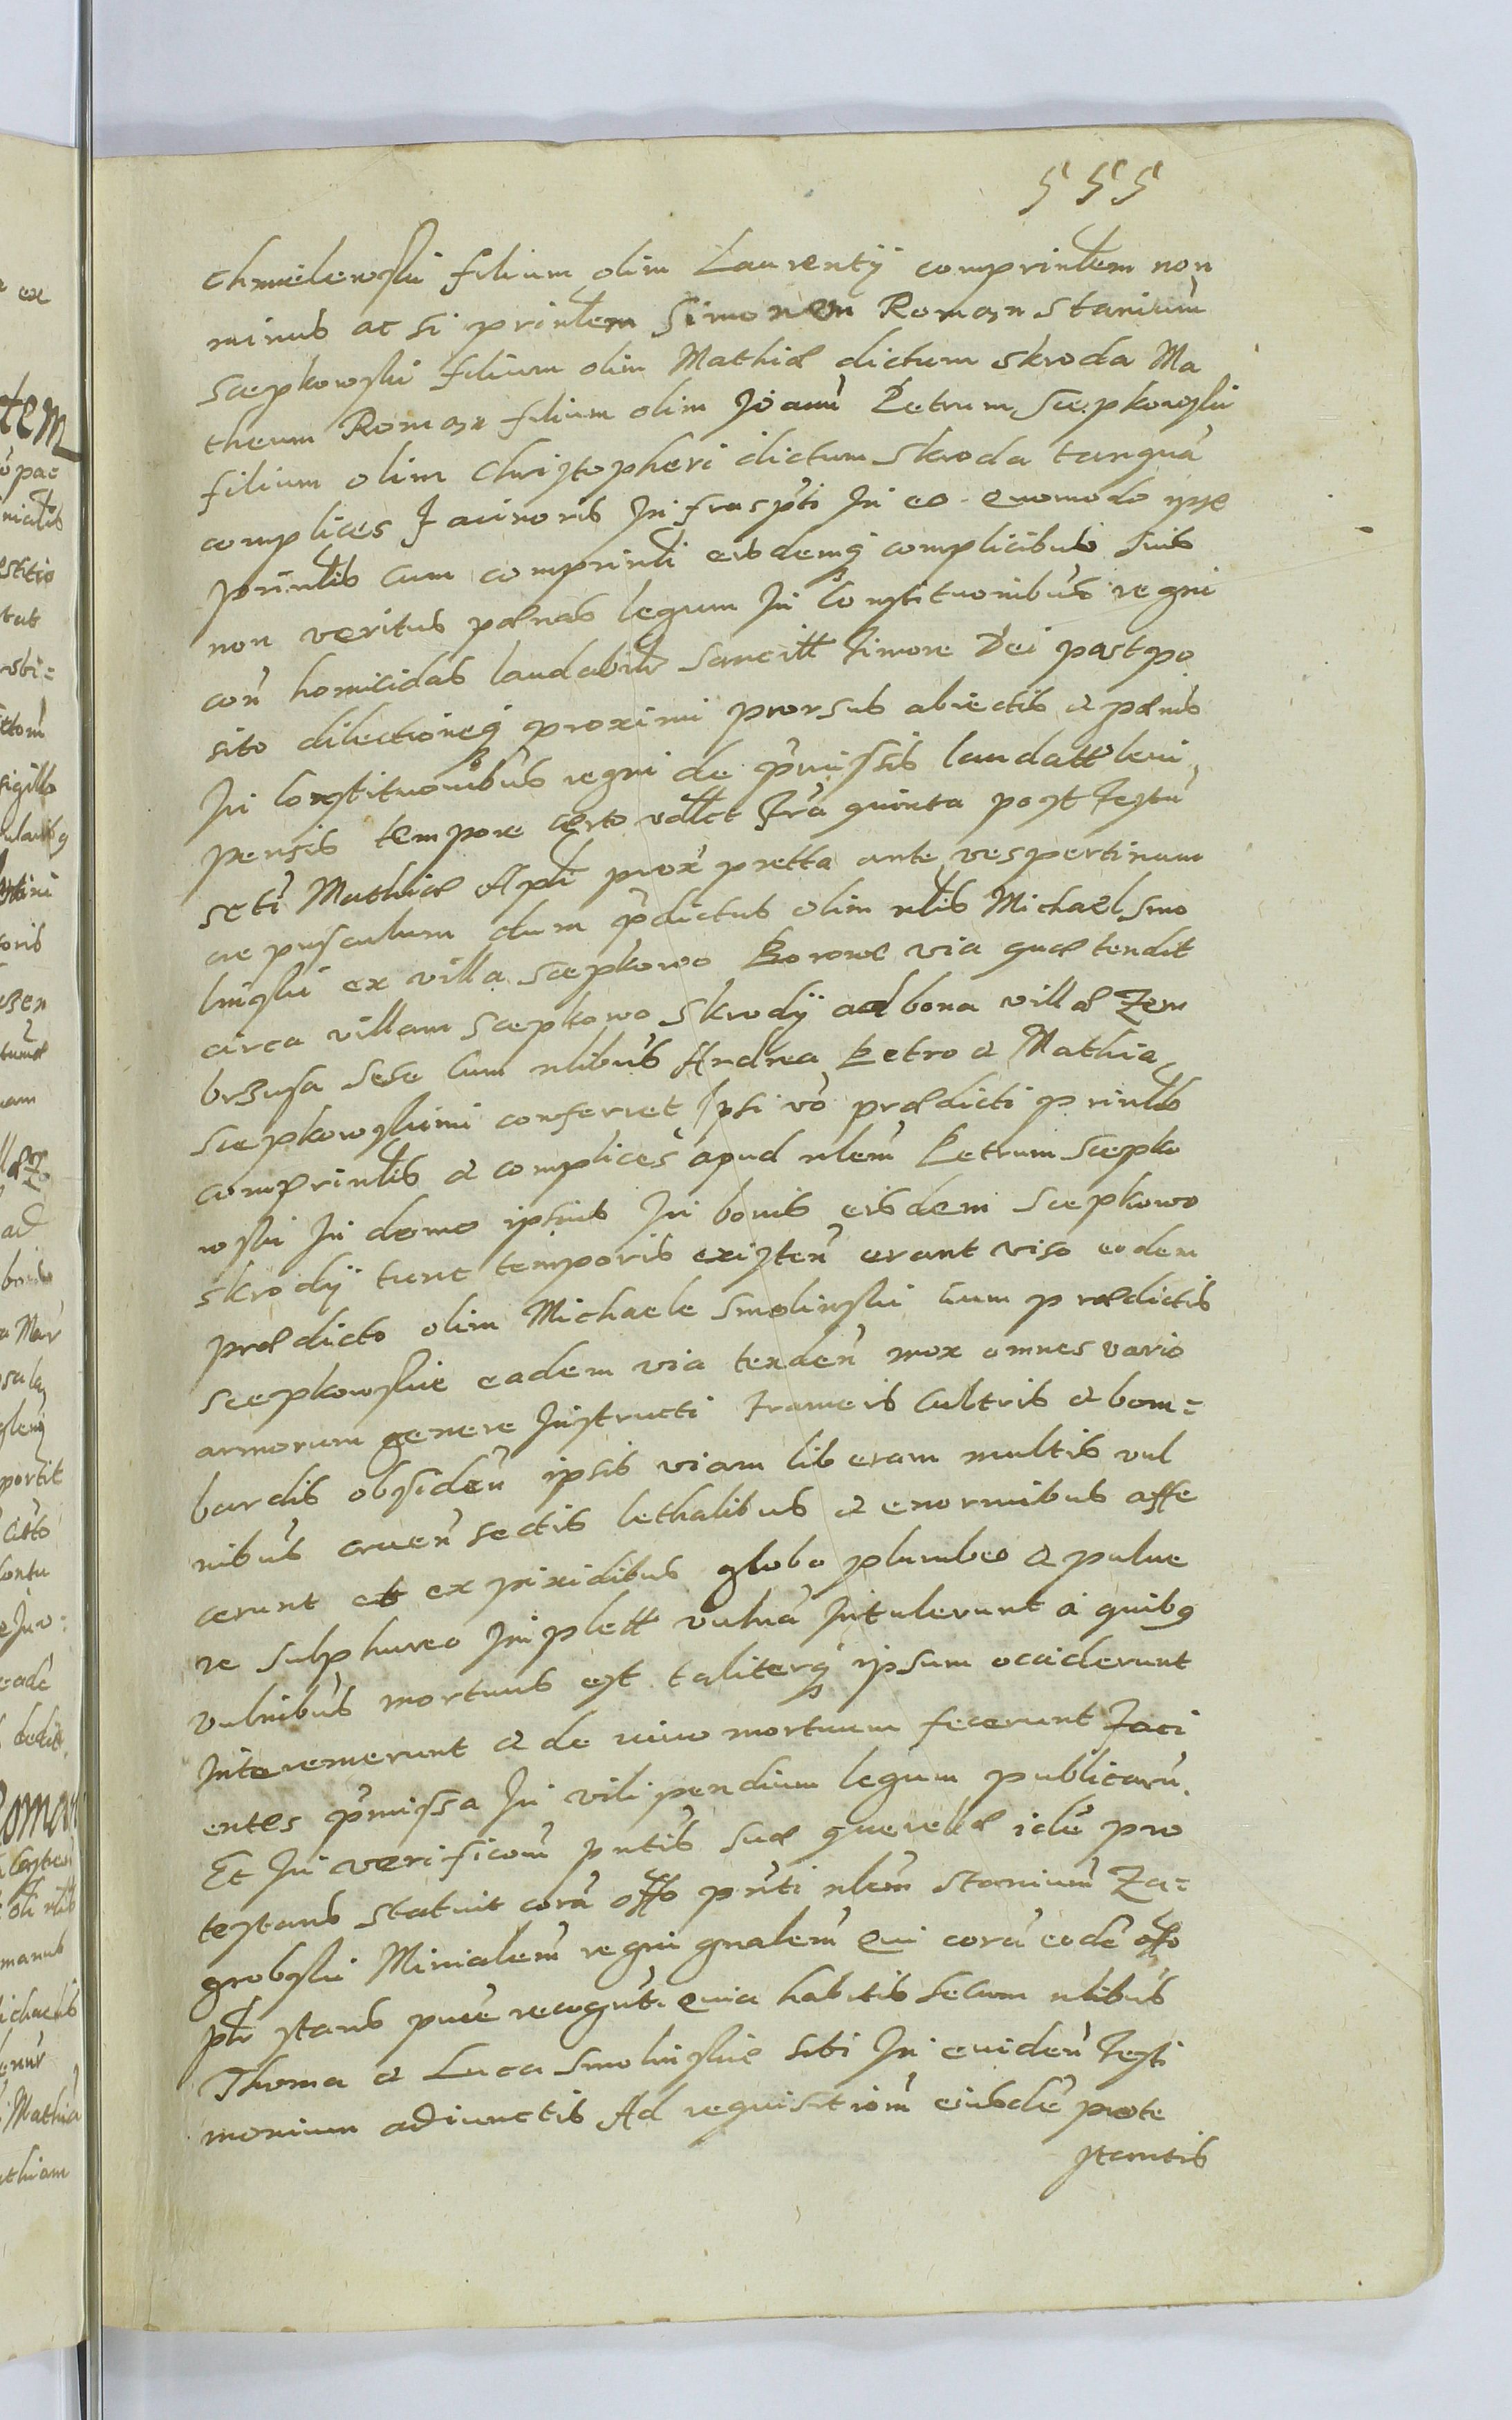 555
Chmielewski filium olim Laurentij comprinlem non
minus ac si prinlem Simonem Roman Stanium
Scepkowski filium olim Mathiæ dictum Skroda Ma
theum Roman filium olim Joann Petrum Scepkowski
filium olim Christopheri dictum Skroda tanquā
complices Facinoris Infrascpti In eo Quomodo ipse
prinlis cum comprinli eisdemq complicibus suis
non veritus pœnas legum In Constituonibus regni
con homicidas laudabilr sancitt Timore Dei postpo
sito dilectioneq proximi prorsus abiectis & pœnis
In Constituonibus regni de pmissis laudatt leui
pensis tempore certo vdlct Fra quinta post festū
scti Mathiæ Apli prox pretta ante vespertinum
crepusculum dum pdictus olim nlis Michael Smo
linski ex villa Scepkowo Borowe via quæ tendit
circa villam Scepkowo Skrody ad bona villæ Zem
brzusa sese cum nlibus Andrea Petro & Mathia
Scepkowskiemi conferret Ipsi vo prædicti prinlis
comprinlis & complices apud nlem Petrum Scepko
wski In domo ipsius In bonis eisdem Scepkowo
Skrodÿ tunc temporis existen erant viso eodem
prædicto olim Michaele Smolinski cum prædictis
Scepkowskie eadem via tenden mox omnes vario
armorum genere Instructi Frameis Cultris & bom=
bardis obsiden ipsis viam liberam multis vul
nibus cruen sectis lethalibus & enormibus affe
cerunt et ex pixidibus globo plumbeo & pulue
re sulphureo Inplett vulna Intulerunt a quibq
vulnibus mortuus est taliterq ipsum occiderunt
Interemerunt & de viuo mortuum fecerunt Faci
entes pmissa In vilipendium legum publicarū
Et In verificaom pntis suæ querelæ idē pro
testans statuit corā offo pnti nlem Stanium Za=
grobski Minialem regni gnalem Qui corā eodē offo
plr stans pure recognt. Quia habitis secum nlibus
Thoma & Luca Smolinskie sibi In euiden Testi
monium adiunctis Ad requisitiom eiusdē prote
stantis